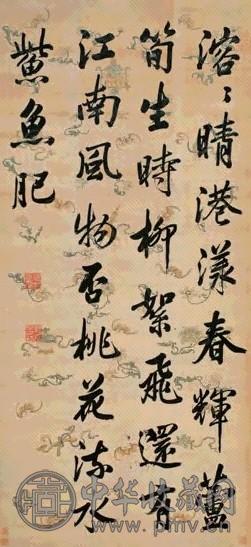 溶〻晴港漾春輝蘆
筍生時柳絮飛還有
江南風物否桃花流水
鮆魚肥
中华收藏网
www.pmv.cn